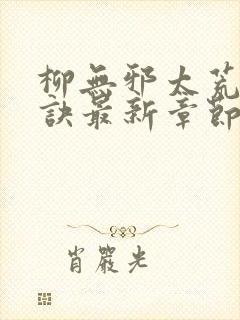 柳無邪太荒
訣最新章節
肖嚴光